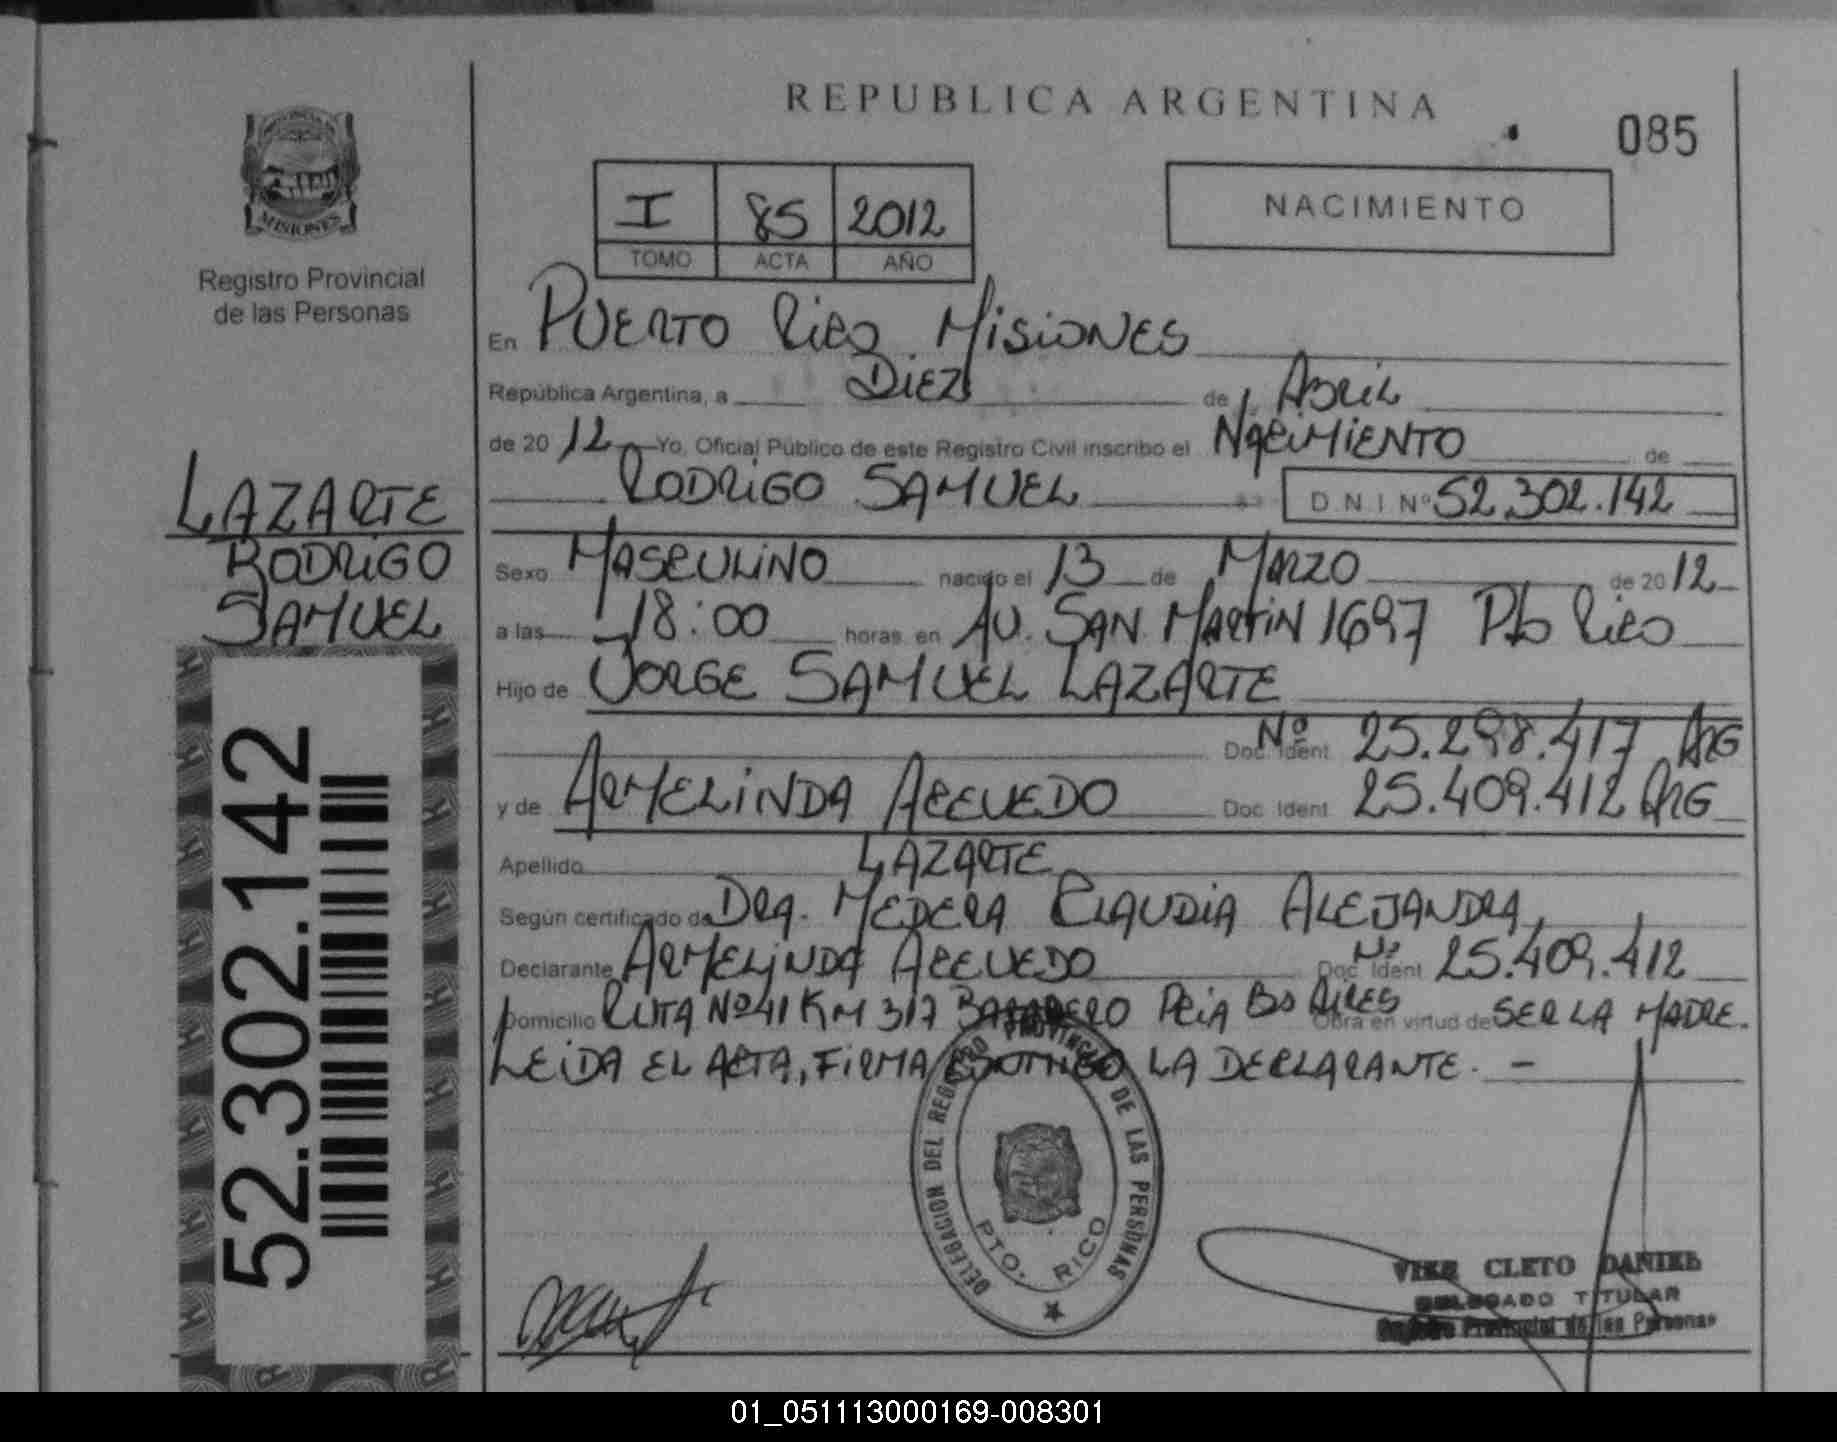 REPUBLICA ARGENTINA
085
MISIONES
Registro Provincial
de las Personas
I 85 2012
TOMO ACTA AÑO
NACIMIENTO
En PUERTO Rico. MISIONES
República Argentina, a DIEZ de ABRIL
de 20 12 Yo, Oficial Público de este Registro Civil inscribo el NACIMIENTO de
RODRIGO SAMUEL D.N.I Nº 52.302.142
LAZARTE
RODRIGO
SAMUEL
Sexo MASCULINO nacido el 13 de MARZO de 20 12
a las 18:00 horas en AV. SAN MARTIN 1697 Pto Rico
Hijo de JORGE SAMUEL LAZARTE
Doc. Ident. Nº 25.298.417 ARG
y de ARMELINDA ACEVEDO Doc. Ident. 25.409.412 ARG
Apellido LAZARTE
Según certificado de DRA. MEDERA CLAUDIA ALEJANDRA
Declarante ARMELINDA ACEVEDO Doc. Ident Nº 25.409.412
Domicilio RUTA Nº 41 KM 317 BARADERO PCIA Bs AIRES Obra en virtud de SER LA MADRE.
LEIDA EL ACTA, FIRMA CONMIGO LA DECLARANTE. –
52.302.142
DELEGACION DEL REGISTRO PROVINCIAL DE LAS PERSONAS
PTO. RICO
CLETO DANIEL
DELEGADO TITULAR
Registro Provincial de las Personas
01_051113000169-008301